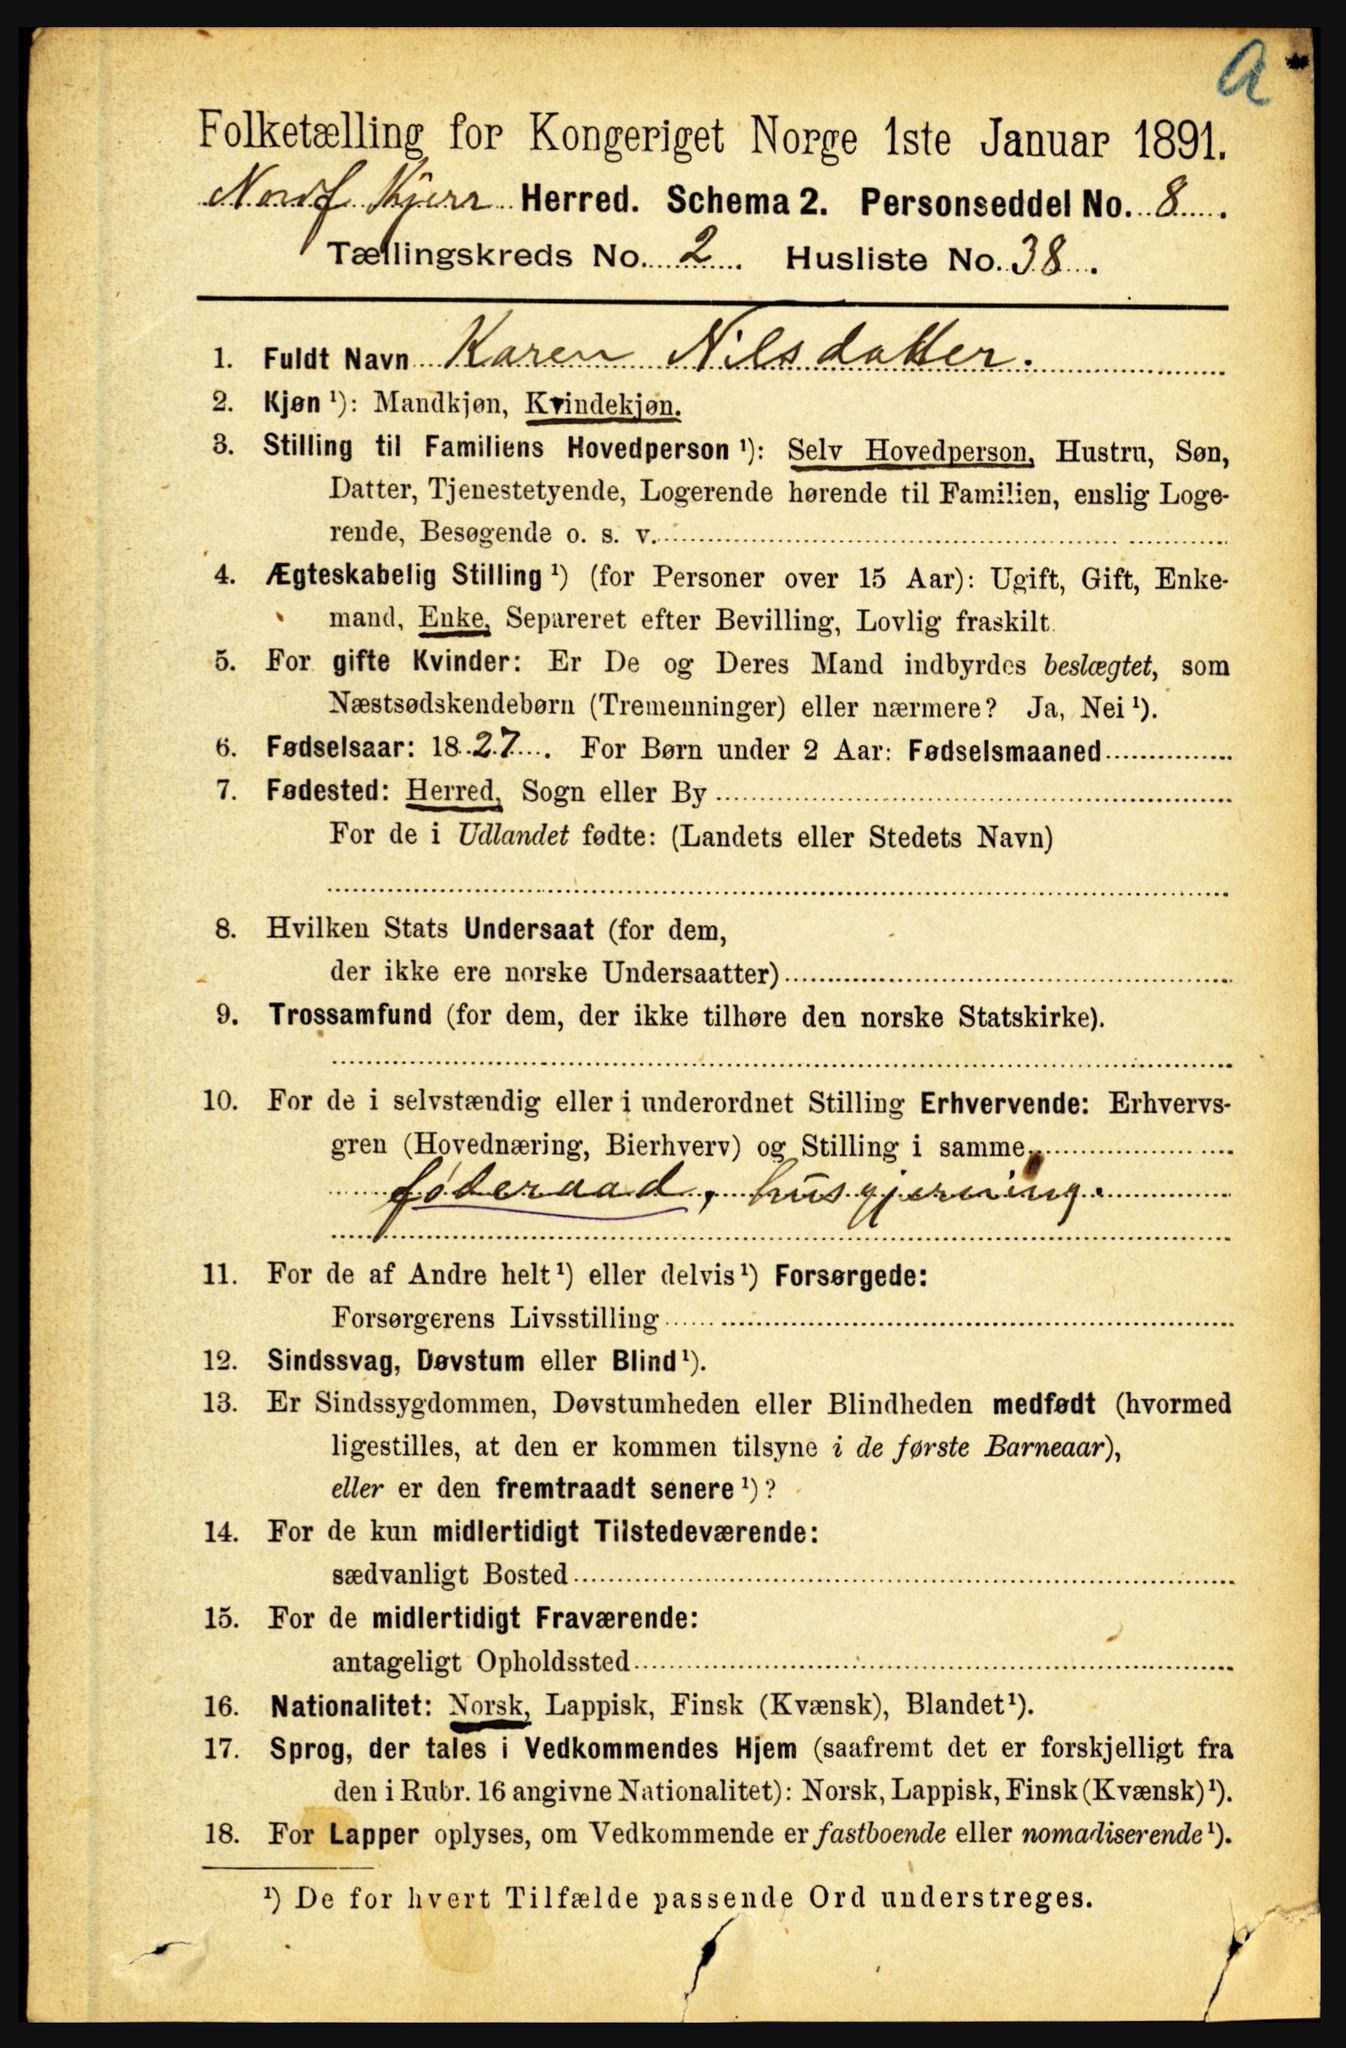 a
Folketælling for Kongeriget Norge 1ste Januar 1891.
Herred. Schema 2. Personseddel No. 8.
Tællingskreds No. 2. Husliste No. 38.
1. Fuldt Navn Karen Nilsdatter.
2. Kjøn ¹): Mandkjøn, Kvindekjøn.
3. Stilling til Familiens Hovedperson ¹): Selv Hovedperson, Hustru, Søn,
Datter, Tjenestetyende, Logerende hørende til Familien, enslig Loge-
rende, Besøgende o. s. v.
4. Ægteskabelig Stilling ¹) (for Personer over 15 Aar): Ugift, Gift, Enke-
mand, Enke, Separeret efter Bevilling, Lovlig fraskilt.
5. For gifte Kvinder: Er De og Deres Mand indbyrdes beslægtet, som
Næstsødskendebørn (Tremenninger) eller nærmere? Ja, Nei ¹).
6. Fødselsaar: 1827. For Børn under 2 Aar: Fødselsmaaned
7. Fødested: Herred, Sogn eller By
For de i Udlandet fødte: (Landets eller Stedets Navn)
8. Hvilken Stats Undersaat (for dem,
der ikke ere norske Undersaatter)
9. Trossamfund (for dem, der ikke tilhøre den norske Statskirke).
10. For de i selvstændig eller i underordnet Stilling Erhvervende: Erhvervs-
gren (Hovednæring, Bierhverv) og Stilling i samme
føderaad, husgjerning.
11. For de af Andre helt ¹) eller delvis ¹) Forsørgede:
Forsørgerens Livsstilling
12. Sindssvag, Døvstum eller Blind ¹).
13. Er Sindssygdommen, Døvstumheden eller Blindheden medfødt (hvormed
ligestilles, at den er kommen tilsyne i de første Barneaar),
eller er den fremtraadt senere ¹)?
14. For de kun midlertidigt Tilstedeværende:
sædvanligt Bosted
15. For de midlertidigt Fraværende:
antageligt Opholdssted
16. Nationalitet: Norsk, Lappisk, Finsk (Kvænsk), Blandet ¹).
17. Sprog, der tales i Vedkommendes Hjem (saafremt det er forskjelligt fra
den i Rubr. 16 angivne Nationalitet): Norsk, Lappisk, Finsk (Kvænsk) ¹).
18. For Lapper oplyses, om Vedkommende er fastboende eller nomadiserende ¹).
¹) De for hvert Tilfælde passende Ord understreges.